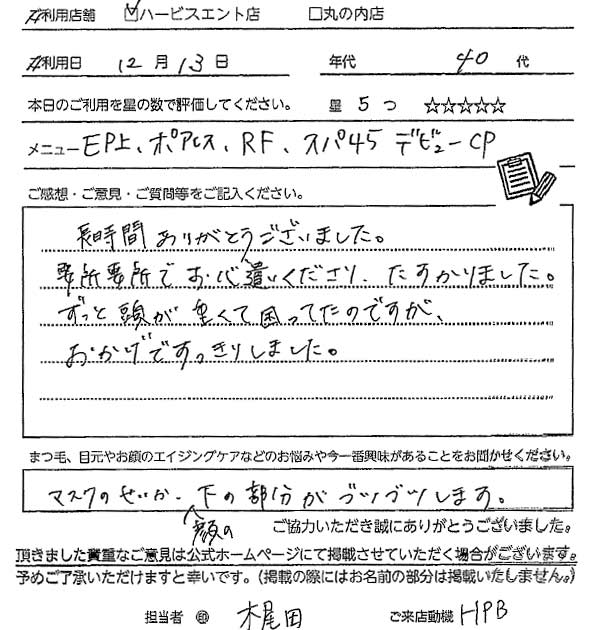 ご利用店舗 ☑ハービスエント店 □丸の内店
ご利用日 12月13日 年代 40代
本日のご利用を星の数で評価してください。 星 5つ ☆☆☆☆☆
メニュー EP上、ポアレス、RF、スパ45 デビューCP
ご感想・ご意見・ご質問等をご記入ください。
長時間ありがとうございました。
要所要所でお心遣いくださり、たすかりました。
ずっと頭が重くて困ってたのですが、
おかげですっきりしました。
まつ毛、目元やお顔のエイジングケアなどのお悩みや今一番興味があることをお聞かせください。
マスクのせいか、顔の下の部分がブツブツします。
ご協力いただき誠にありがとうございました。
頂きました貴重なご意見は公式ホームページにて掲載させていただく場合がございます。
予めご了承いただけますと幸いです。（掲載の際にはお名前の部分は掲載いたしません。）
担当者 ㊞ 木尾田 ご来店動機 HPB